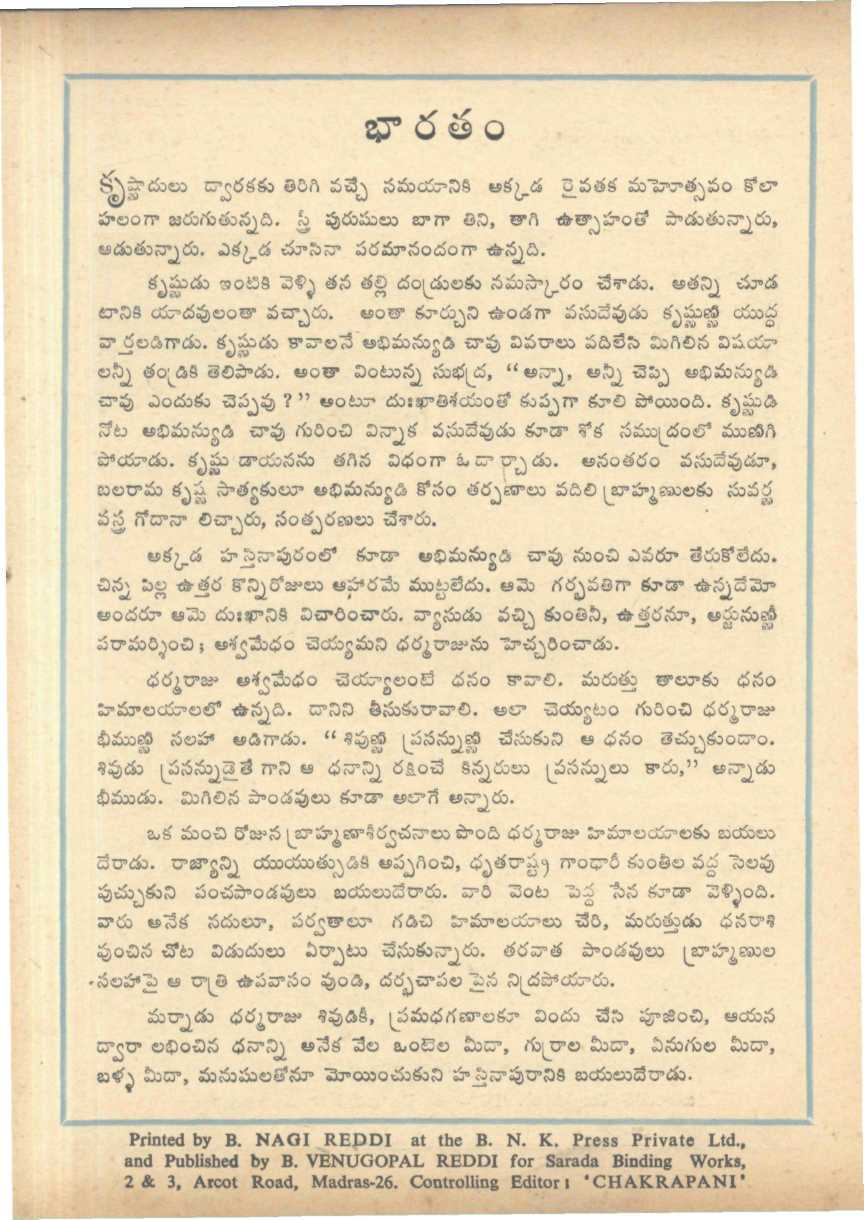 భారతం
కృష్ణాదులు ద్వారకకు తిరిగి వచ్చే సమయానికి అక్కడ రైవతక మహెూత్సవం కోలా
హలంగా జరుగుతున్నది. స్త్రీ పురుషులు బాగా తిని, తాగి ఉత్సాహంతో పాడుతున్నారు,
ఆడుతున్నారు. ఎక్కడ చూసినా పరమానందంగా ఉన్నది.
కృష్ణుడు ఇంటికి వెళ్ళి తన తల్లి దండ్రులకు నమస్కారం చేశాడు. అతన్ని చూడ
టానికి యాదవులంతా వచ్చారు. అంతా కూర్చుని ఉండగా వసుదేవుడు కృష్ణుణ్ణి యుద్ధ
వార్తలడిగాడు. కృష్ణుడు కావాలనే అభిమన్యుడి చావు వివరాలు వదిలేసి మిగిలిన విషయా
లన్నీ తండ్రికి తెలిపాడు. అంతా వింటున్న సుభద్ర, “అన్నా, అన్నీ చెప్పి అభిమన్యుడి
చావు ఎందుకు చెప్పవు ?” అంటూ దుఃఖాతిశయంతో కుప్పగా కూలి పోయింది. కృష్ణుడి
నోట అభిమన్యుడి చావు గురించి విన్నాక వసుదేవుడు కూడా శోక సముద్రంలో ముణిగి
పోయాడు. కృష్ణు డాయనను తగిన విధంగా ఓదార్చాడు. అనంతరం వసుదేవుడూ,
బలరామ కృష్ణ సాత్యకులూ అభిమన్యుడి కోసం తర్పణాలు వదిలి బ్రాహ్మణులకు సువర్ణ
వస్త్ర గోదానా లిచ్చారు, సంతర్పణలు చేశారు.
అక్కడ హస్తినాపురంలో కూడా అభిమన్యుడి చావు నుంచి ఎవరూ తేరుకోలేదు.
చిన్న పిల్ల ఉత్తర కొన్నిరోజులు ఆహారమే ముట్టలేదు. ఆమె గర్భవతిగా కూడా ఉన్నదేమో
అందరూ ఆమె దుఃఖానికి విచారించారు. వ్యాసుడు వచ్చి కుంతినీ, ఉత్తరనూ, అర్జునుణ్ణీ
పరామర్శించి; అశ్వమేధం చెయ్యమని ధర్మరాజును హెచ్చరించాడు.
ధర్మరాజు అశ్వమేధం చెయ్యాలంటే ధనం కావాలి. మరుత్తు తాలూకు ధనం
హిమాలయాలలో ఉన్నది. దానిని తీసుకురావాలి. అలా చెయ్యటం గురించి ధర్మరాజు
భీముణ్ణి సలహా అడిగాడు. “శివుణ్ణి ప్రసన్నుణ్ణి చేసుకుని ఆ ధనం తెచ్చుకుందాం.
శివుడు ప్రసన్నుడైతే గాని ఆ ధనాన్ని రక్షించే కిన్నరులు ప్రసన్నులు కారు,” అన్నాడు
భీముడు. మిగిలిన పాండవులు కూడా అలాగే అన్నారు.
ఒక మంచి రోజున బ్రాహ్మణాశీర్వచనాలు పొంది ధర్మరాజు హిమాలయాలకు బయలు
దేరాడు. రాజ్యాన్ని యుయుత్సుడికి అప్పగించి, ధృతరాష్ట్ర గాంధారీ కుంతీల వద్ద సెలవు
పుచ్చుకుని పంచపాండవులు బయలుదేరారు. వారి వెంట పెద్ద సేన కూడా వెళ్ళింది.
వారు అనేక నదులూ, పర్వతాలూ గడిచి హిమాలయాలు చేరి, మరుత్తుడు ధనరాశి
వుంచిన చోట విడుదులు ఏర్పాటు చేసుకున్నారు. తరవాత పాండవులు బ్రాహ్మణుల
సలహాపై ఆ రాత్రి ఉపవాసం వుండి, దర్భచాపల పైన నిద్రపోయారు.
మర్నాడు ధర్మరాజు శివుడికీ, ప్రమధగణాలకూ విందు చేసి పూజించి, ఆయన
ద్వారా లభించిన ధనాన్ని అనేక వేల ఒంటెల మీదా, గుర్రాల మీదా, ఏనుగుల మీదా,
బళ్ళ మీదా, మనుషులతోనూ మోయించుకుని హస్తినాపురానికి బయలుదేరాడు.
Printed by B. NAGI REDDI at the B. N. K. Press Private Ltd.,
and Published by B. VENUGOPAL REDDI for Sarada Binding Works,
2 & 3, Arcot Road, Madras-26. Controlling Editor : 'CHAKRAPANI'